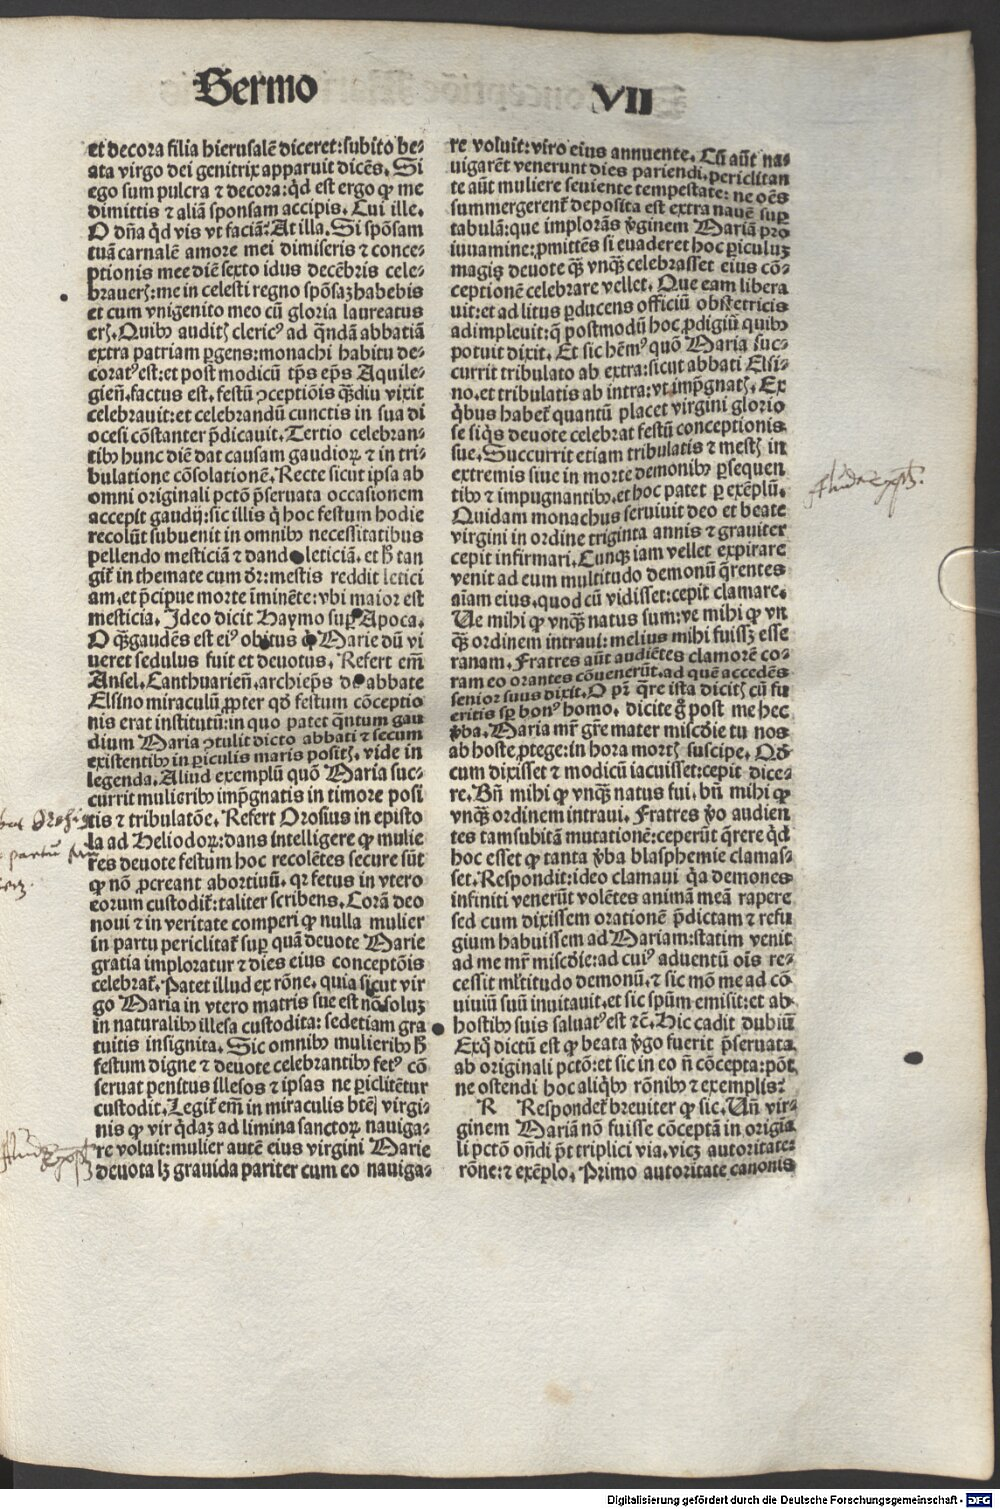 Sermo VII
et decora filia hierusalē diceret: subito be-
ata virgo dei genitrix apparuit dicēs. Si
ego sum pulcra ⁊ decora: qd̓ est ergo ꝙ me
dimittis ⁊ aliā sponsam accipis. Cui ille.
O dn̄a qd̓ vis vt faciā? At illa. Si spōsam
tuā carnalē amore mei dimiseris ⁊ conce-
ptionis mee diē sexto idus decēbris cele-
braueꝝ: me in celesti regno spōsaꝫ habebis
et cum vnigenito meo cū gloria laureatus
erꝭ. Quibꝰ auditꝭ clericꝰ ad qn̄dā abbatiā
extra patriam ꝑgens: monachi habitu de-
coratꝰ est: et post modicū tp̄s ep̄s Aquile-
gien̄. factus est. festū ↄceptiōis qȝdiu vixit
celebrauit: et celebrandū cunctis in sua di
ocesi cōstanter p̄dicauit. Tertio celebran-
tibꝰ hunc diē dat causam gaudioꝝ ⁊ in tri-
bulatione cōsolationē. Recte sicut ipsa ab
omni originali pctō p̄seruata occasionem
accepit gaudij: sic illis q̇ hoc festum hodie
recolūt subuenit in omnibꝰ necessitatibus
pellendo mesticiā ⁊ dando leticiā. et h̄ tan
git̄ in themate cum dr̄: mestis reddit letici
am. et p̄cipue morte īminēte: vbi maior est
mesticia. Ideo dicit Haymo sup̱ Apoca.
O qȝ gaudēs est eiꝰ obitus q̇ Marie dū vi
ueret sedulus fuit et deuotus. Refert em̄
Ansel. Canthuarien̄. archiep̄s de abbate
Elsino miraculū ꝓpter qd̓ festum cōceptio
nis erat institutū: in quo patet qn̄tum gau
dium Maria ↄtulit dicto abbati ⁊ secum
existentibꝰ in ꝑiculis maris positꝭ. vide in
legenda. Aliud exemplū quō Maria suc-
currit mulieribꝰ imp̄gnatis in timore posi
tis ⁊ tribulatōe. Refert Orosius in episto
la ad Heliodoꝝ: dans intelligere ꝙ mulie
res deuote festum hoc recolētes secure sūt
ꝙ nō ꝓcreant abortiuū. qꝛ fetus in vtero
eorum custodit̄: taliter scribens. Corā deo
noui ⁊ in veritate comperi ꝙ nulla mulier
in partu periclitat̄ sup̱ quā deuote Marie
gratia imploratur ⁊ dies eius conceptōis
celebrat̄. Patet illud ex rōne. quia sicut vir
go Maria in vtero matris sue est nō soluꝫ
in naturalibꝰ illesa custodita: sed etiam gra
tuitis insignita. Sic omnibꝰ mulieribꝰ h̄
festum digne ⁊ deuote celebrantibꝰ fetꝰ cō-
seruat penitus illesos ⁊ ipsas ne ꝑiclitētur
custodit. Legit̄ em̄ in miraculis btē virgi-
nis ꝙ vir q̇daꝫ ad limina sanctoꝝ nauiga-
re voluit: mulier autē eius virgini Marie
deuota lꝫ grauida pariter cum eo nauiga-
re voluit: viro eius annuente. Cū aūt na-
uigarēt venerunt dies pariendi. periclitan
te aūt muliere seuiente tempestate: ne oēs
summergerent̄ deposita est extra nauē sup̱
tabulā: que implorās v̓ginem Mariā pro
iuuamine: ꝓmittēs si euaderet hoc ꝑiculuꝫ
magis deuote qȝ vnqȝ celebrasset eius cō-
ceptionē celebrare vellet. Que eam libera
uit: et ad litus ꝑducens officiū obstetricis
adimpleuit: q̄ postmodū hoc ꝓdigiū quibꝰ
potuit dixit. Et sic hēmꝰ quō Maria suc-
currit tribulato ab extra: sicut abbati Elsi-
no. et tribulatis ab intra: vt imp̄gnatꝭ. Ex
q̇bus habet̄ quantū placet virgini glorio
se siq̇s deuote celebrat festū conceptionis
sue. Succurrit etiam tribulatis ⁊ mestꝭ in
extremis siue in morte demonibꝰ ꝑsequen
tibꝰ ⁊ impugnantibꝰ. et hoc patet ꝑ exēplū.
Quidam monachus seruiuit deo et beate
virgini in ordine triginta annis ⁊ grauiter
cepit infirmari. Cunqȝ iam vellet expirare
venit ad eum multitudo demonū q̄rentes
aīam eius. quod cū vidisset: cepit clamare.
Ve mihi ꝙ vnqȝ natus sum: ve mihi ꝙ vn
qȝ ordinem intraui: melius mihi fuissꝫ esse
ranam. Fratres aūt audiētes clamorē co-
ram eo orantes cōuenerūt. ad quē accedēs
senior suus dixit. O pr̄ q̄re ista dicitꝭ cū fu
eritis sp̄ bonꝰ homo. dicite g̊ post me hec
v̓ba. Maria mr̄ gr̄e mater miscd̓ie tu nos
ab hoste ꝓtege: in hora mortꝭ suscipe. Qd̓
cum dixisset ⁊ modicū iacuisset: cepit dice-
re. Bn̄ mihi ꝙ vnqȝ natus fui. bn̄ mihi ꝙ
vnqȝ ordinem intraui. Fratres v̓o audien
tes tam subitā mutationē: ceperūt q̄rere qd̓
hoc esset ꝙ tanta v̓ba blasphemie clamas-
set. Respondit: ideo clamaui q̇a demones
infiniti venerūt volētes animā meā rapere
sed cum dixissem orationē p̄dictam ⁊ refu
gium habuissem ad Mariam: statim venit
ad me mr̄ miscd̓ie: ad cuiꝰ aduentū oīs re-
cessit ml̓titudo demonū. ⁊ sic mō me ad cō
uiuiū suū inuitauit. et sic spūm emisit: et ab
hostibꝰ suis saluatꝰ est ⁊c̄. Hic cadit dubiū
Exq̊ dictū est ꝙ beata v̓go fuerit p̄seruata
ab originali pctō: et sic in eo n̄ cōcepta: pōt
ne ostendi hoc aliq̇bꝰ rōnibꝰ ⁊ exemplis?
R Respondet̄ breuiter ꝙ sic. Un̄ vir-
ginem Mariā nō fuisse cōceptā in origīa
li pctō on̄di pn̄t triplici via. vicꝫ autoritate:
rōne: ⁊ exēplo. Primo autoritate canonis
Digitalisierung gefördert durch die Deutsche Forschungsgemeinschaft - DFG